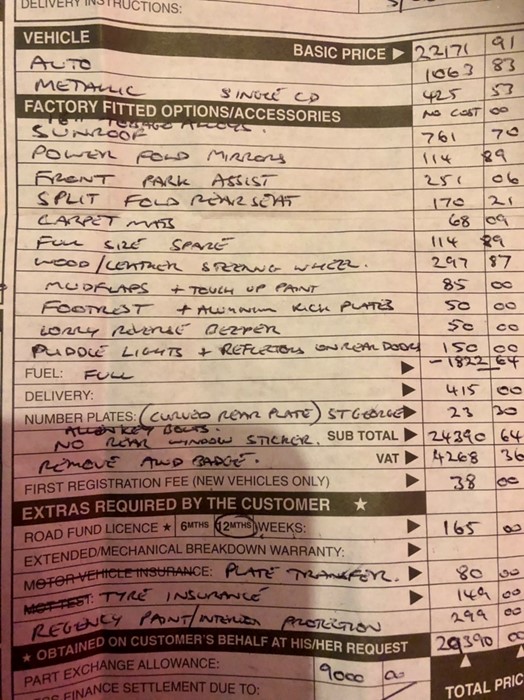 DELIVERY INSTRUCTIONS:
VEHICLE BASIC PRICE ▶ 22171 91
AUTO 1063 83
METALLIC SINGLE CD 425 53
FACTORY FITTED OPTIONS/ACCESSORIES NO COST 00
SUNROOF 761 70
POWER FOLD MIRRORS 114 89
FRONT PARK ASSIST 251 06
SPLIT FOLD REAR SEAT 170 21
CARPET MATS 68 09
FULL SIZE SPARE 114 89
WOOD/LEATHER STEERING WHEEL. 297 87
MUDFLAPS + TOUCH UP PAINT 85 00
FOOTREST + ALUMINIUM KICK PLATES 50 00
LORRY REVERSE BEEPER 50 00
PUDDLE LIGHTS + REFLECTORS ON REAR DOORS 150 00
FUEL: FULL ▶ -1822 64
DELIVERY: ▶ 415 00
NUMBER PLATES: (CURVED REAR PLATE) ST GEORGE ▶ 23 30
ALLEN KEY BOLTS.
NO REAR WINDOW STICKER. SUB TOTAL ▶ 24390 64
REMOVE AWD BADGE. VAT ▶ 4268 36
FIRST REGISTRATION FEE (NEW VEHICLES ONLY) 38 00
EXTRAS REQUIRED BY THE CUSTOMER ★
ROAD FUND LICENCE ★ 6MTHS 12MTHS WEEKS: ▶ 165 00
EXTENDED/MECHANICAL BREAKDOWN WARRANTY: ▶
MOTOR VEHICLE INSURANCE: PLATE TRANSFER. ▶ 80 00
MOT TEST: TYRE INSURANCE ▶ 149 00
REGENCY PAINT/INTERIOR PROTECTION 299 00
★ OBTAINED ON CUSTOMER'S BEHALF AT HIS/HER REQUEST 29390 00
PART EXCHANGE ALLOWANCE: 9000 00
FINANCE SETTLEMENT DUE TO: TOTAL PRIC